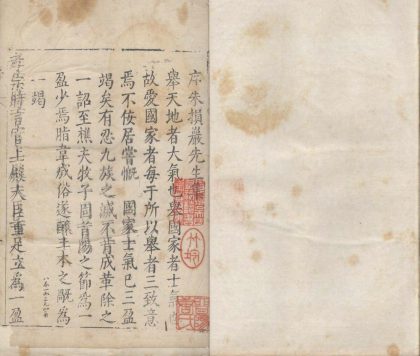 序朱損巖先生
舉天地者大氣也舉國家者士氣
故愛國家者每于所以舉者三致意
焉不佞居嘗慨 國家士氣已三盈
竭矣有忍九族之滅不肯成革除之
一詔至樵夫牧子固首陽之節為一
盈少焉脂韋成俗遂釀土木之為
一竭
孝宗時言官上殿大臣重足立為一盈